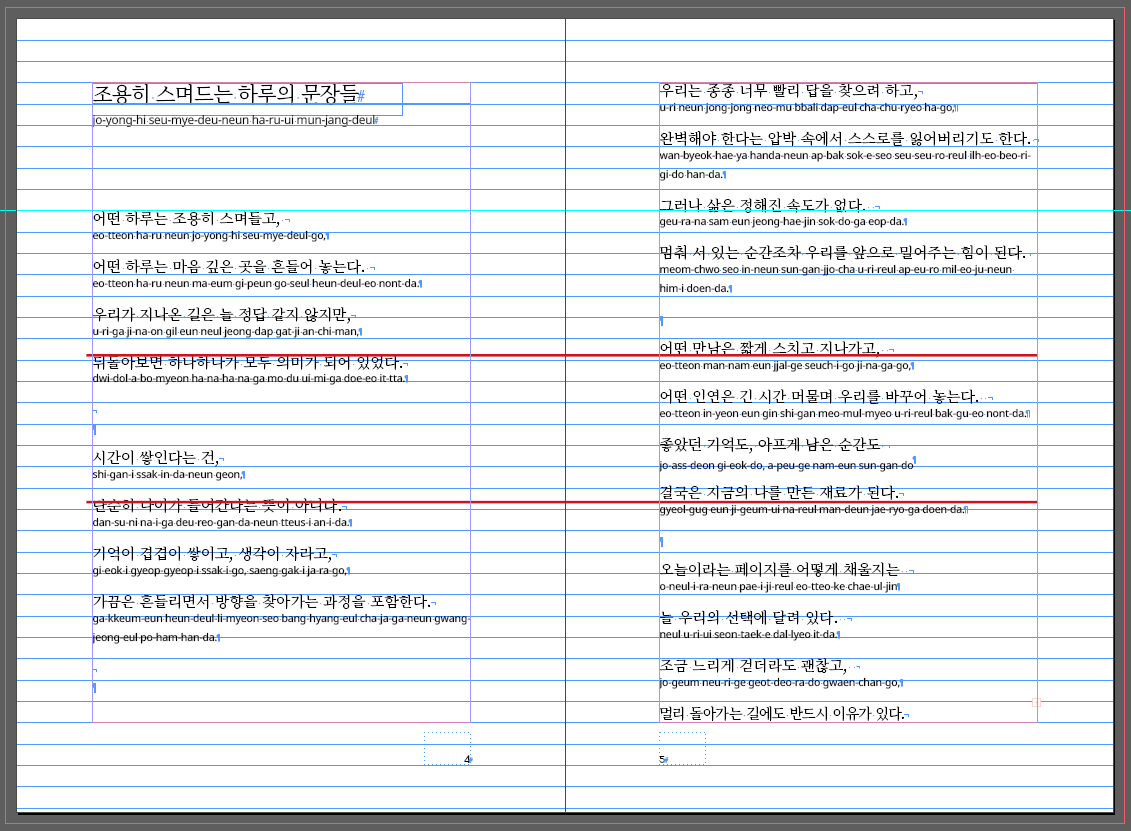 조용히 스며드는 하루의 문장들
jo-yong-hi seu-mye-deu-neun ha-ru-ui mun-jang-deul
어떤 하루는 조용히 스며들고,
eo-tteon ha-ru-neun jo-yong-hi seu-mye-deul-go,
어떤 하루는 마음 깊은 곳을 흔들어 놓는다.
eo-tteon ha-ru-neun ma-eum gi-peun go-seul heun-deul-eo nont-da.
우리가 지나온 길은 늘 정답 같지 않지만,
u-ri-ga ji-na-on gil eun neul jeong-dap gat-ji an-chi-man,
뒤돌아보면 하나하나가 모두 의미가 되어 있었다.
dwi-dol-a-bo-myeon ha-na-ha-na-ga mo-du ui-mi-ga doe-eo it-tta.
시간이 쌓인다는 건,
shi-gan-i ssak-in-da-neun geon,
단순히 나이가 들어간다는 뜻이 아니다.
dan-su-ni na-i-ga deu-reo-gan-da-neun tteus-i an-i-da.
기억이 겹겹이 쌓이고, 생각이 자라고,
gi-eok-i gyeop-gyeop-i ssak-i-go, saeng-gak-i ja-ra-go,
가끔은 흔들리면서 방향을 찾아가는 과정을 포함한다.
ga-kkeum-eun heun-deul-li-myeon-seo bang-hyang-eul cha-ja-ga-neun gwang-
jeong-eul po-ham-han-da.
4
우리는 종종 너무 빨리 답을 찾으려 하고,
u-ri-neun jong-jong neo-mu bbali dap-eul cha-chu-ryeo ha-go,
완벽해야 한다는 압박 속에서 스스로를 잃어버리기도 한다.
wan-byeok-hae-ya handa-neun ap-bak sok-e-seo seu-seu-ro-reul ilh-eo-beo-ri-
gi-do han-da.
그러나 삶은 정해진 속도가 없다.
geu-ra-na sam eun jeong-hae-jin sok-do-ga eop-da.
멈춰 서 있는 순간조차 우리를 앞으로 밀어주는 힘이 된다.
meom-chwo seo in-neun sun-gan-jjo-cha u-ri-reul ap-eu-ro mil-eo-ju-neun
him-i doen-da.
어떤 만남은 짧게 스치고 지나가고,
eo-tteon man-nam eun jjal-ge seuch-i-go ji-na-ga-go,
어떤 인연은 긴 시간 머물며 우리를 바꾸어 놓는다.
eo-tteon in-yeon eun gin shi-gan meo-mul-myeo u-ri-reul bak-gu-eo nont-da.
좋았던 기억도, 아프게 남은 순간도
jo-ass-deon gi-eok-do, a-peu-ge nam eun sun-gan-do
결국은 지금의 나를 만든 재료가 된다.
gyeol-gug eun ji-geum-ui na-reul man-deun jae-ryo-ga doen-da.
오늘이라는 페이지를 어떻게 채울지는
o-neul-i-ra-neun pae-i-ji-reul eo-tteo-ke chae-ul-jin
늘 우리의 선택에 달려 있다.
neul u-ri-ui seon-taek-e dal-lyeo it-da.
조금 느리게 걷더라도 괜찮고,
jo-geum neu-ri-ge geot-deo-ra-do gwaen-chan-go,
멀리 돌아가는 길에도 반드시 이유가 있다.
5